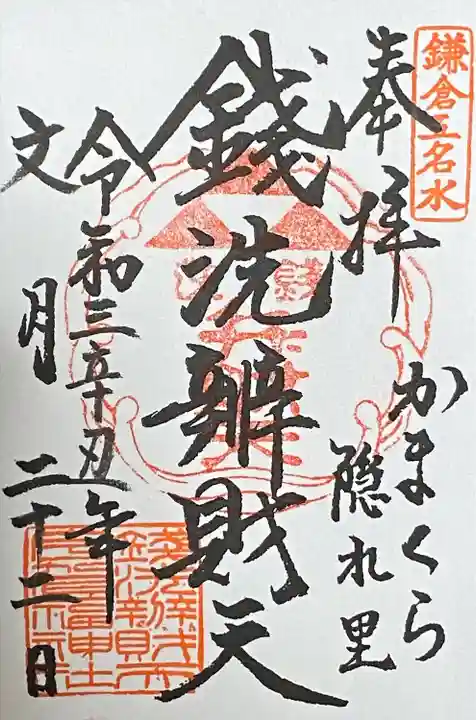 鎌倉五名水
奉拝
かまくら
隠れ里
銭洗辨財天
令和三辛丑年
文月二十二日